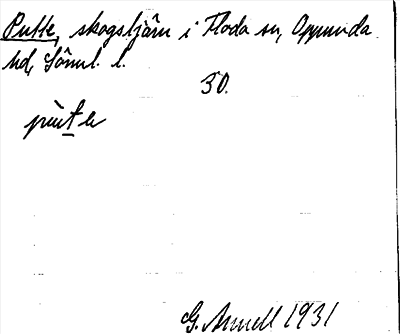 Putte, skogstjärn i Floda sn, Oppunda
hd, Södml. l.
30.
pùte
G. Annell 1931